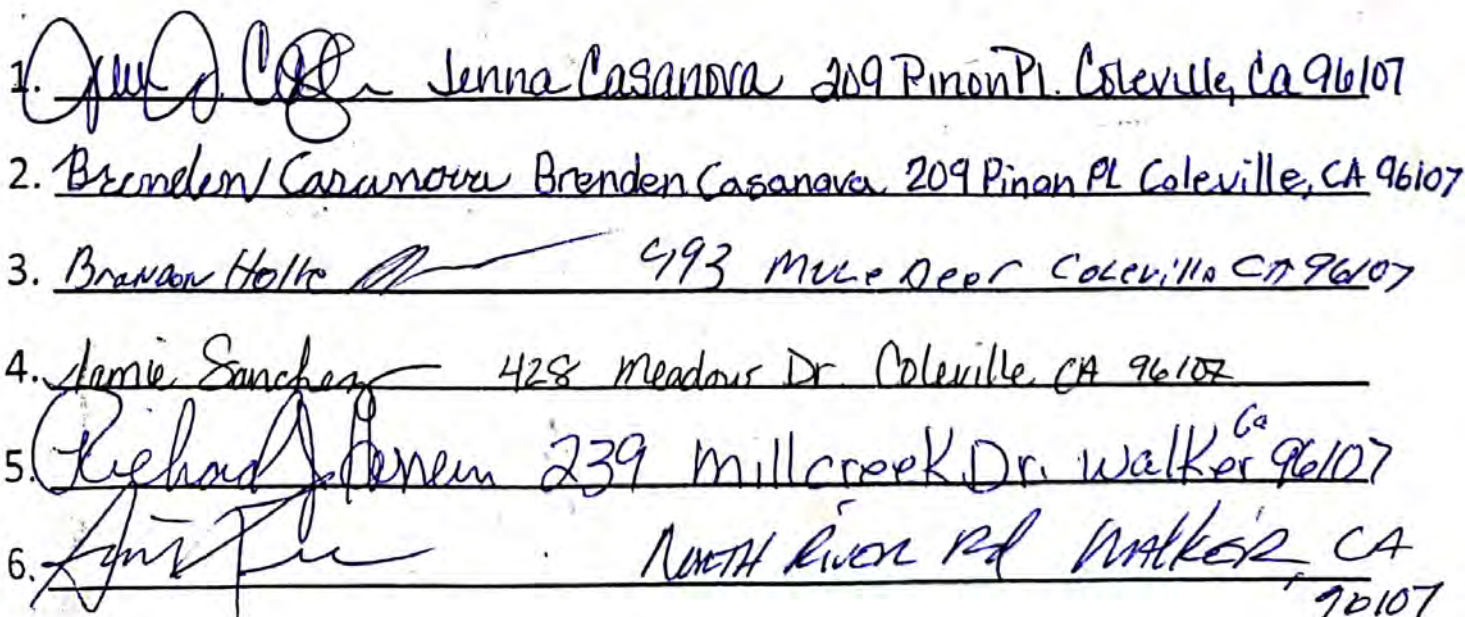 1. Jenna Casanova 209 Pinon Pl. Coleville, Ca 96107
2. Brenden Casanova Brenden Casanova 209 Pinon PL Coleville, CA 96107
3. Brandon Holte 493 Mule Deer Coleville CA 96107
4. Jamie Sanchez 428 Meadows Dr. Coleville CA 96107
5. Richard J. 239 Millcreek Dr. Walker Ca 96107
6. North River Rd Walker, CA
96107